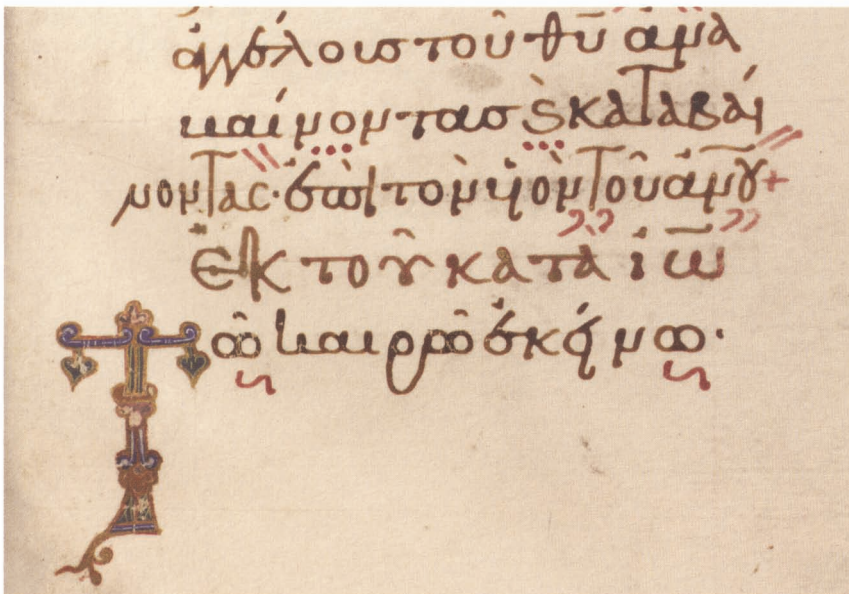 ἀγγέλους τοῦ θυ̅ ἀνα
βαίνοντας ϗ καταβαί
νοντας· ἐπὶ τὸν υἱὸν τοῦ ἀν̅ου +
Ἐκ τοῦ κατὰ ἰω̅
Τῶ καιρῶ ἐκείνω·